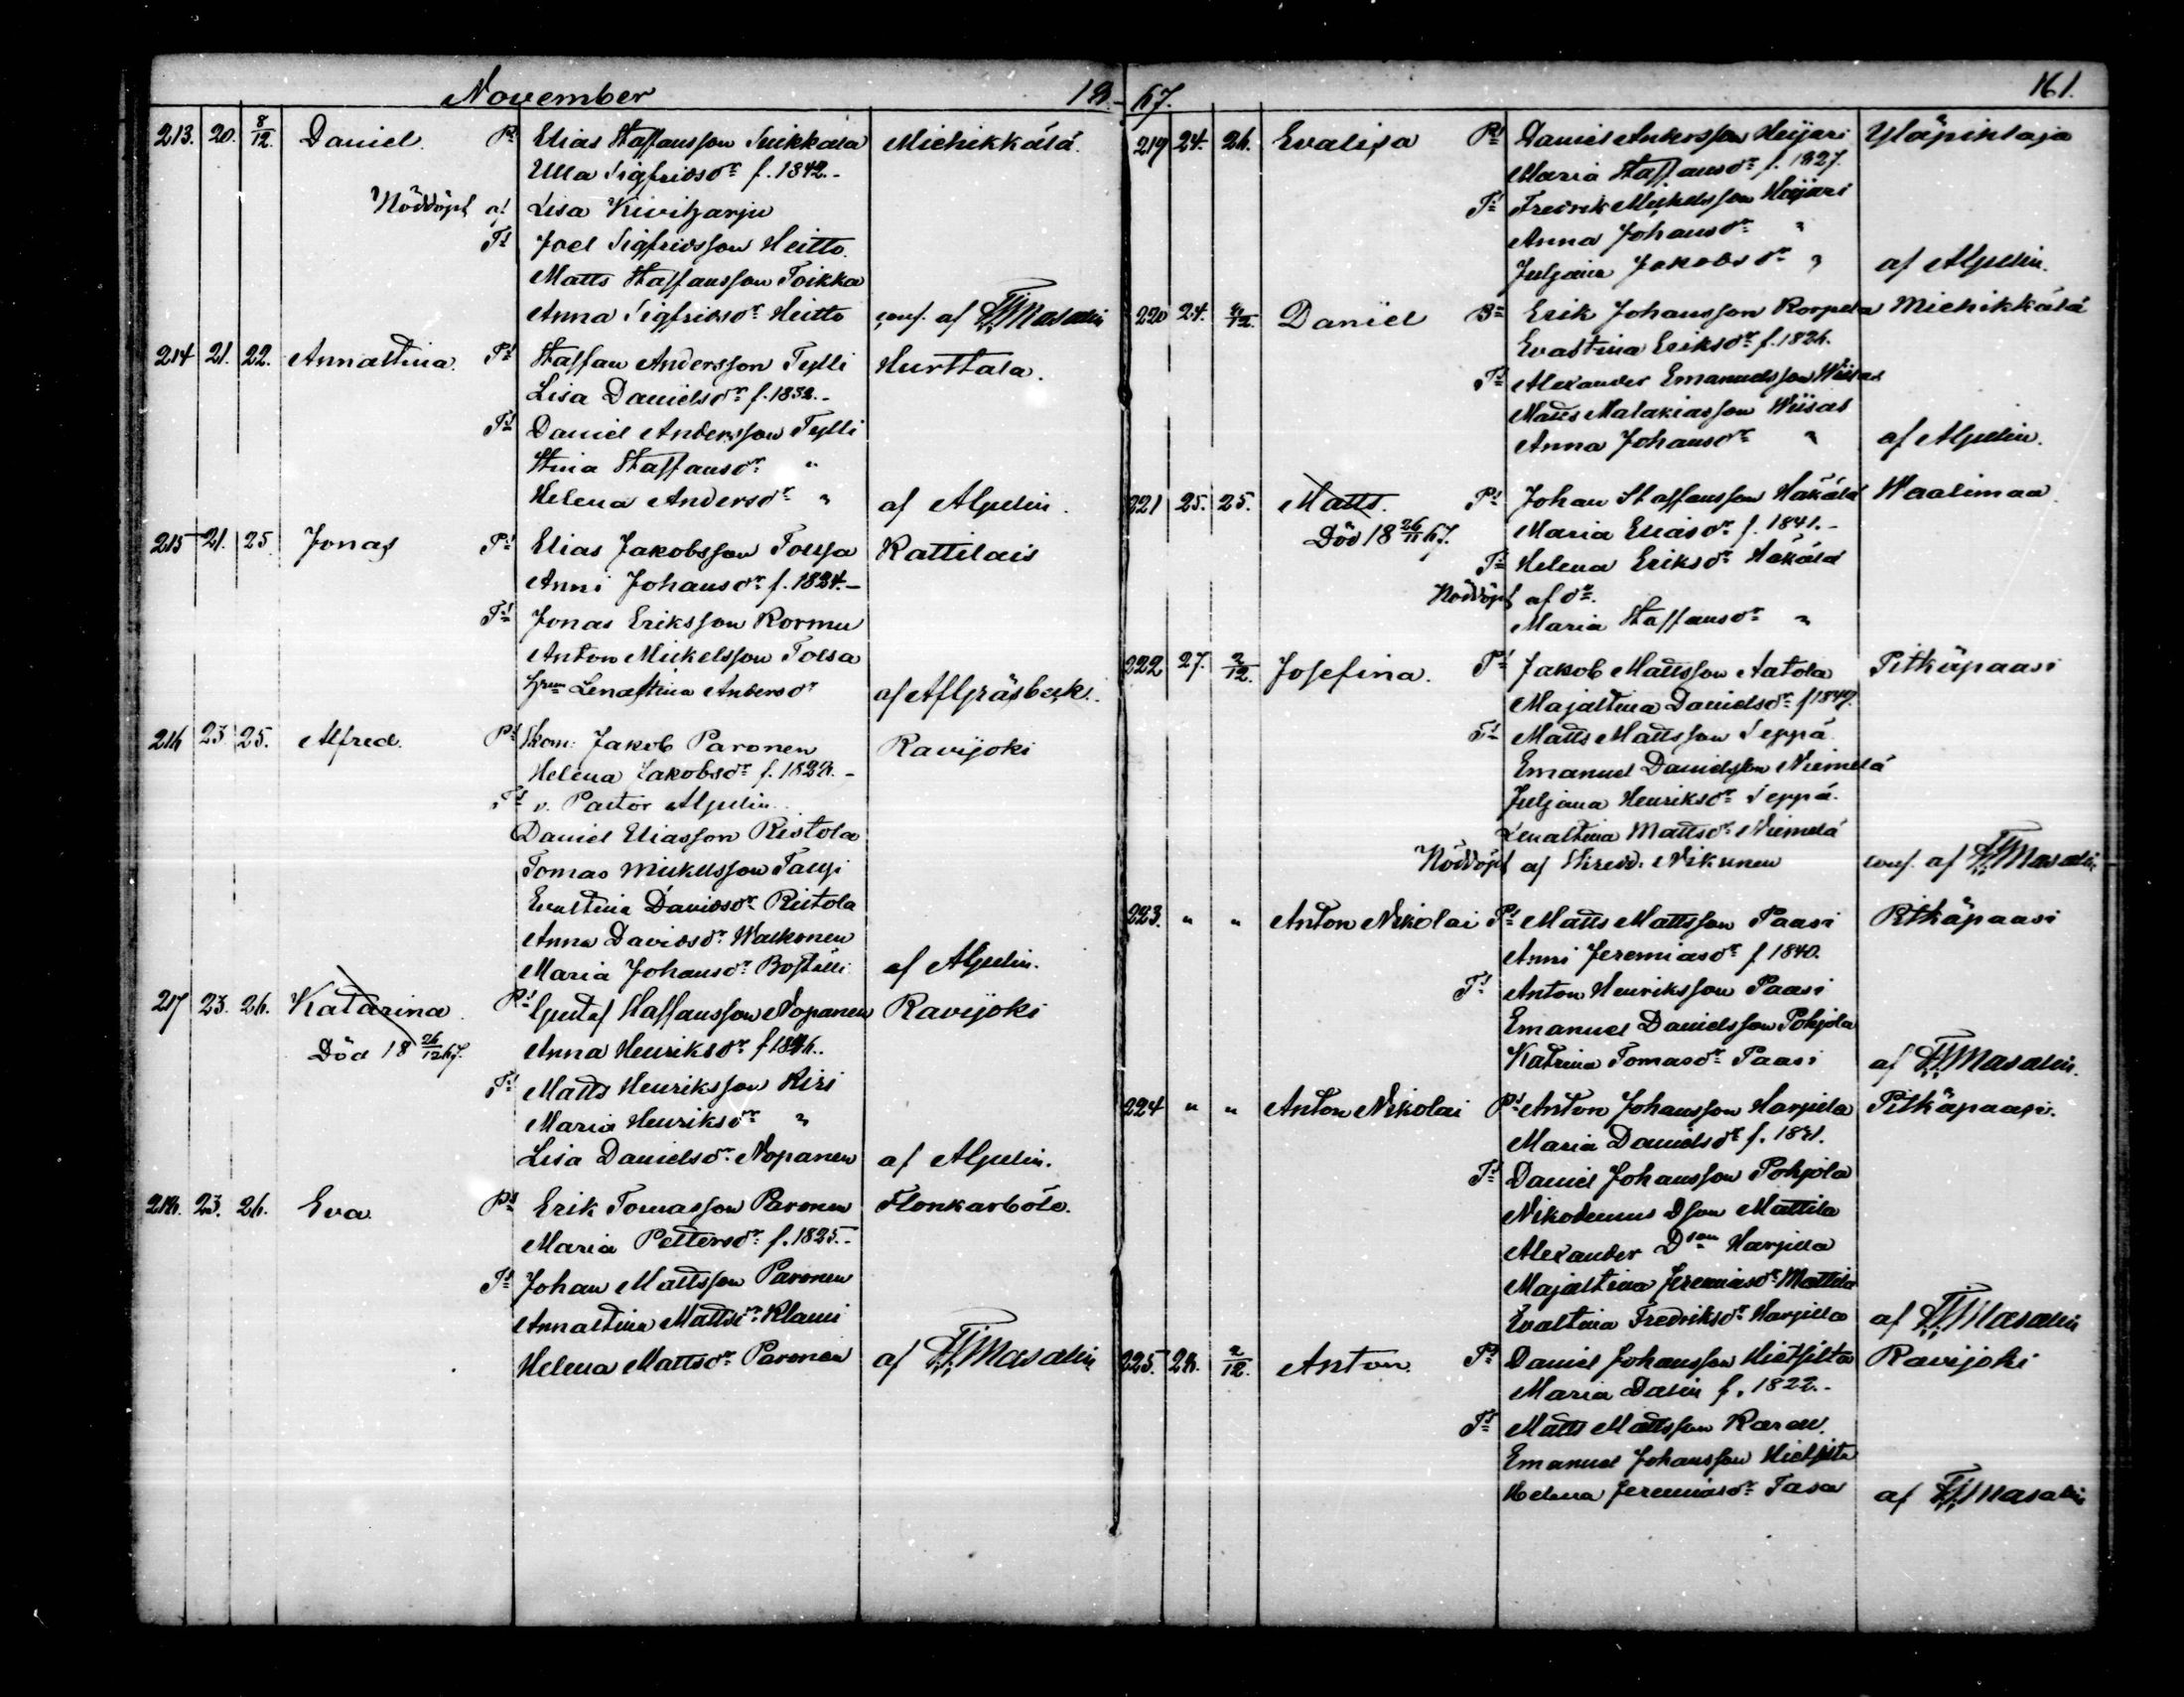 November 18
213. 20. 8/12. Daniel. Pr Elias Staffansson Suikkala Miehikkälä.
Ulla Sigfridsdr f. 1842.-
Nöddöpt af Lisa Kiviharju
Ts Joel Sigfridsson Heitto.
Matts Staffansson Toikka
Anna Sigfridsdr Heitto conf. af Masalin
214 21. 22. Annastina. Ps Staffan Andersson Tylli Hurttala.
Lisa Danielsdr f. 1832.-
Ts Daniel Andersson Tylli
Stina Staffansdr "
Helena Andersdr " af Alpelin.
215 21. 25. Jonas Ps Elias Jakobsson Kattilais
Anni Johansdr f. 1824.-
Ts Jonas Eriksson Kormu
Anton Mickelsson
Lenastina Andersdr af Gräsbeck.
216 23 25. Alfred. Ps Jakob Paronen Ravijoki
Helena Jakobsdr
Ts v. Pastor Alpelin.
Daniel Eliasson Ristola
Tomas Mickelsson
Evastina Davidsdr Ristola
Anna Davidsdr Walkonen
Maria Johansdr af Alpelin.
217 23. 26. Katarina Ps Gustaf Staffansson Nopanen Ravijoki
Död 18 26/12 67. Anna Henriksdr
Ts Matts Henriksson Kiri
Maria Henriksdr "
Lisa Danielsdr Nopanen af Alpelin.
218. 23. 26. Eva Ps Erik Tomasson Paronen Flonkarböle.
Maria Pettersdr f. 1825.-
Ts Johan Mattsson Paronen
Annastina Mattsdr Klami
Helena Mattsdr Paronen af Masalin
67. 161.
219 24. 26. Evalisa Ps Daniel Andersson Heijari Yläpihlaja
Maria Staffansdr f. 1827.
Ts Fredrik Mickelsson Heijari
Anna Johansdr "
Juljana Jakobsdr " af Alpelin.
220 24. Daniel Erik Johansson Korpela Miehikkälä
Evastina Eriksdr f. 1826.
Ts Alexander Emanuelsson Wiisas
Matts Malakiasson Wiisas
Anna Johansdr " af Alpelin.
221 25. 25. Matts. Ps Johan Staffansson Häkälä Waalimaa
Död 18 26/11 67. Maria Eliasdr f. 1841.-
Ts Helena Eriksdr Häkälä
Nöddöpt af dr.
Maria Staffansdr "
222 27. 2/12. Josefina. Ps Jakob Mattsson Aatola Pitkäpaasi
Majastina Danielsdr
Ts Matts Mattsson Seppä
Emanuel Danielsson Niemelä
Juljana Henriksdr Seppä.
Lenastina Mattsdr Niemelä
Nöddöpt af Nikunen conf. af Masalin
223. " " Anton Nikolai Ps Matts Mattsson Paasi Pitkäpaasi
Anni Jeremiasdr f 1840.
Ts Anton Henriksson Paasi
Emanuel Danielsson Pohjola
Katrina Tomasdr Paasi af Masalin.
224 " " Anton Nikolai Ps Anton Johansson Harjula Pitkäpaasi.
Maria Danielsdr
Ts Daniel Johansson Pohjola
Nikodemus Dson Mattila
Alexander Dson Harjula
Majastina Jeremiasdr Mattila
Evastina Fredriksdr Harjula af Masalin
225. 28. 2/12. Anton. Ps Daniel Johansson Ravijoki
Maria Dalin f. 1822.-
Ts Matts Mattsson
Emanuel Johansson
Helena Jeremiasdr Tasa af Masalin